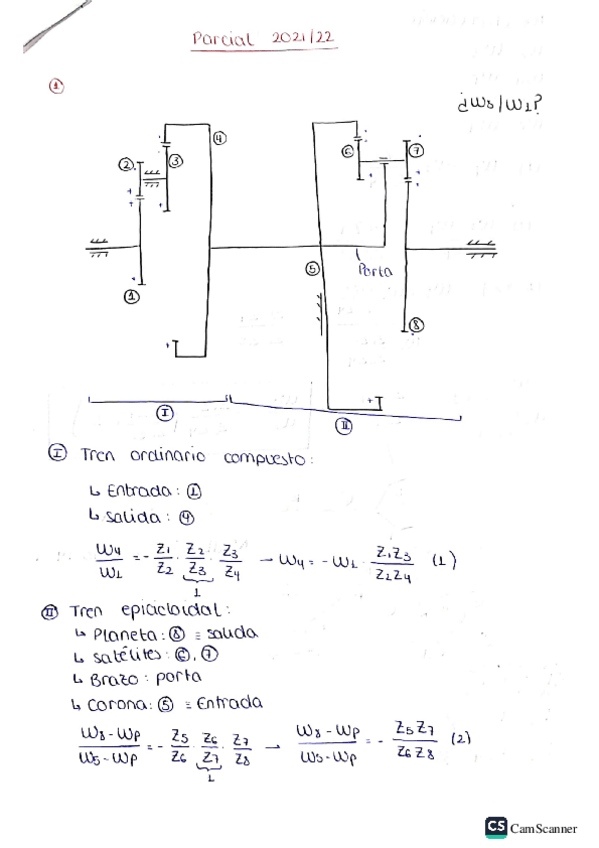 Parcial 2021/22
①
¿ω8/ω1?
④
②
③
⑥
⑦
⑤
Porta
①
⑧
Ⅰ
Ⅱ
Ⅰ Tren ordinario compuesto:
↳ Entrada: ①
↳ Salida: ④
ω4/ω1 = - Z1/Z2 · Z2/Z3 · Z3/Z4 → ω4 = - ω1 · Z1Z3/Z2Z4 (1)
1
Ⅱ Tren epicicloidal:
↳ Planeta: ⑧ ≡ salida
↳ Satélites: ⑥, ⑦
↳ Brazo: porta
↳ Corona: ⑤ ≡ Entrada
ω8 - ωp/ω5 - ωp = - Z5/Z6 · Z6/Z7 · Z7/Z8 → ω8 - ωp/ω5 - ωp = - Z5 Z7/Z6 Z8 (2)
1
CS CamScanner